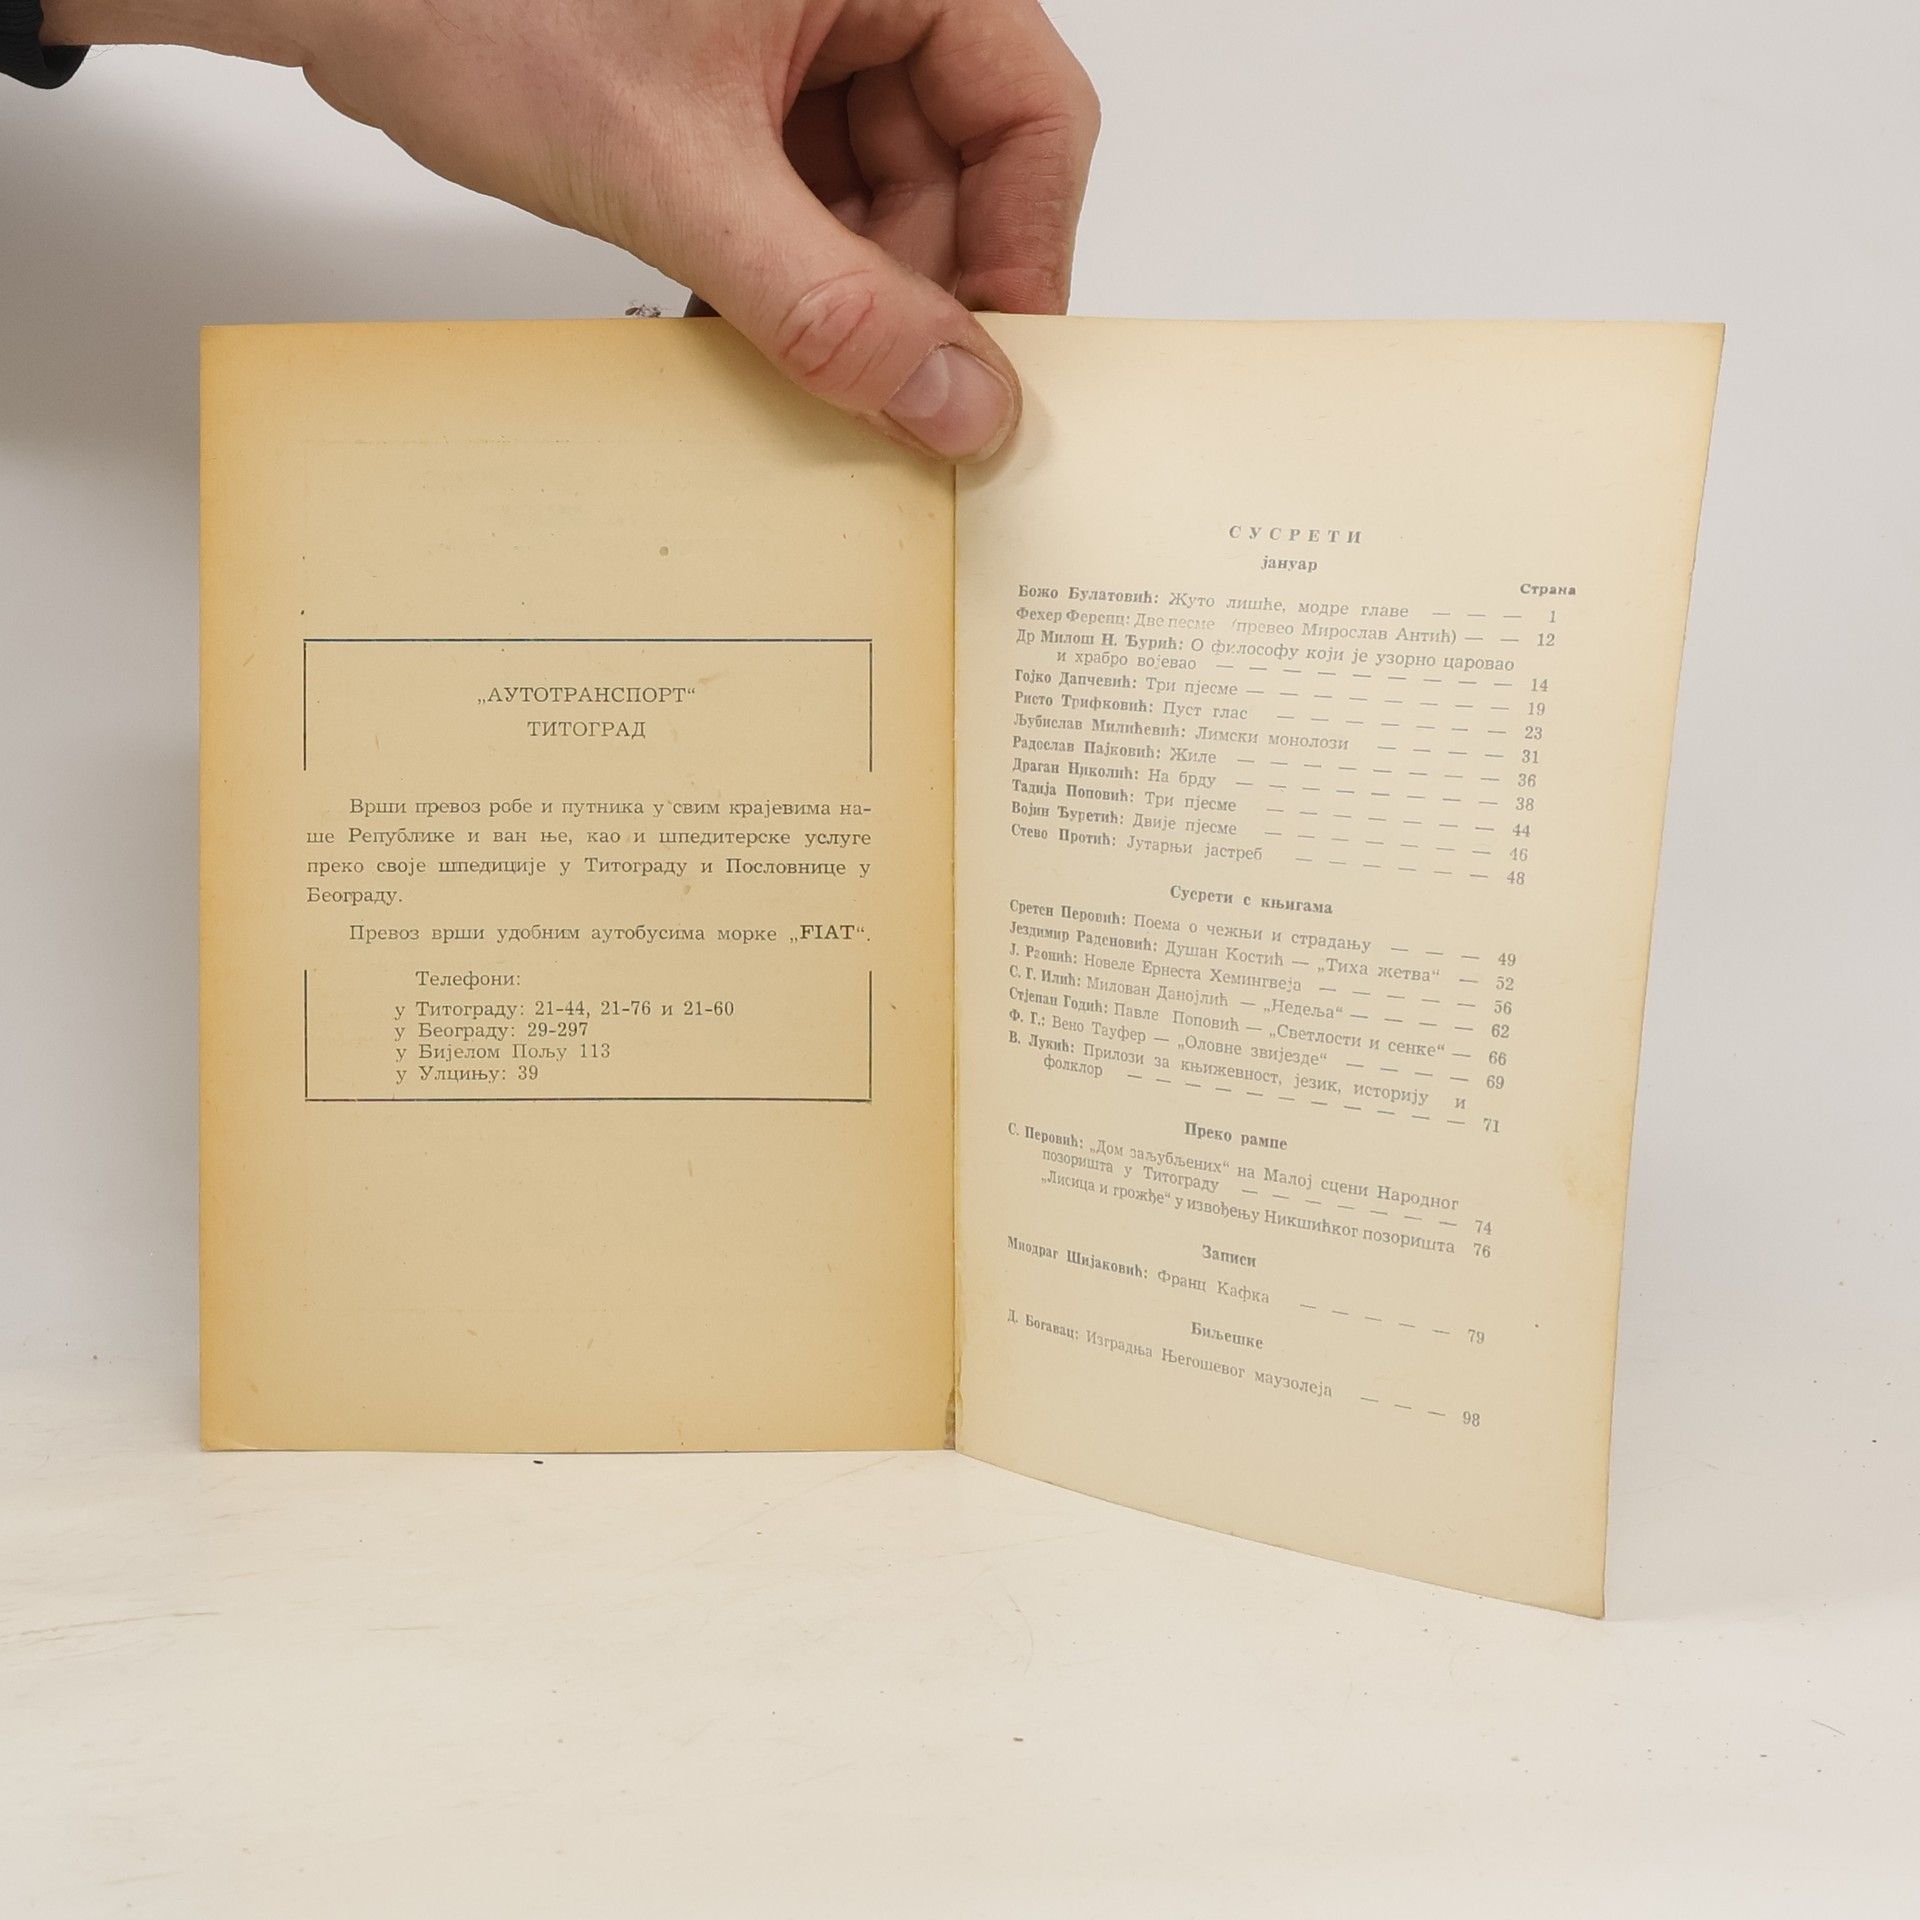 „АУТОТРАНСПОРТ“
ТИТОГРАД
Врши превоз робе и путника у свим крајевима на-
ше Републике и ван ње, као и шпедитерске услуге
преко своје шпедиције у Титограду и Пословнице у
Београду.
Превоз врши удобним аутобусима морке „FIAT“.
Телефони:
у Титограду: 21-44, 21-76 и 21-60
у Београду: 29-297
у Бијелом Пољу 113
у Улцињу: 39
СУСРЕТИ
јануар
Страна
Божо Булатовић: Жуто лишће, модре главе — — — 1
Фехер Ференц: Две песме (превео Мирослав Антић) — — 12
Др Милош Н. Ђурић: О философу који је узорно царовао
и храбро војевао — — — — — — — — — — 14
Гојко Дапчевић: Три пјесме — — — — — — — — — 19
Ристо Трифковић: Пуст глас — — — — — — — — 23
Љубислав Милићевић: Лимски монолози — — — — — 31
Радослав Пајковић: Жиле — — — — — — — — — 36
Драган Николић: На брду — — — — — — — — — 38
Тадија Поповић: Три пјесме — — — — — — — — 44
Војин Ђуретић: Двије пјесме — — — — — — — — 46
Стево Протић: Јутарњи јастреб — — — — — — — 48
Сусрети с књигама
Сретен Перовић: Поема о чежњи и страдању — — — — 49
Јездимир Раденовић: Душан Костић — „Тиха жетва“ — 52
Ј. Раонић: Новеле Ернеста Хемингвеја — — — — — 56
С. Г. Илић: Милован Данојлић — „Недеља“ — — — — 62
Стјепан Годић: Павле Поповић — „Светлости и сенке“ — 66
Ф. Г.: Вено Тауфер — „Оловне звијезде“ — — — — — 69
В. Лукић: Прилози за књижевност, језик, историју и
фолклор — — — — — — — — — — — 71
Преко рампе
С. Перовић: „Дом заљубљених“ на Малој сцени Народног
позоришта у Титограду — — — — — — — 74
„Лисица и грожђе“ у извођењу Никшићког позоришта 76
Записи
Миодраг Шијаковић: Франц Кафка — — — — — 79
Биљешке
Д. Богавац: Изградња Његошевог маузолеја — — — 98